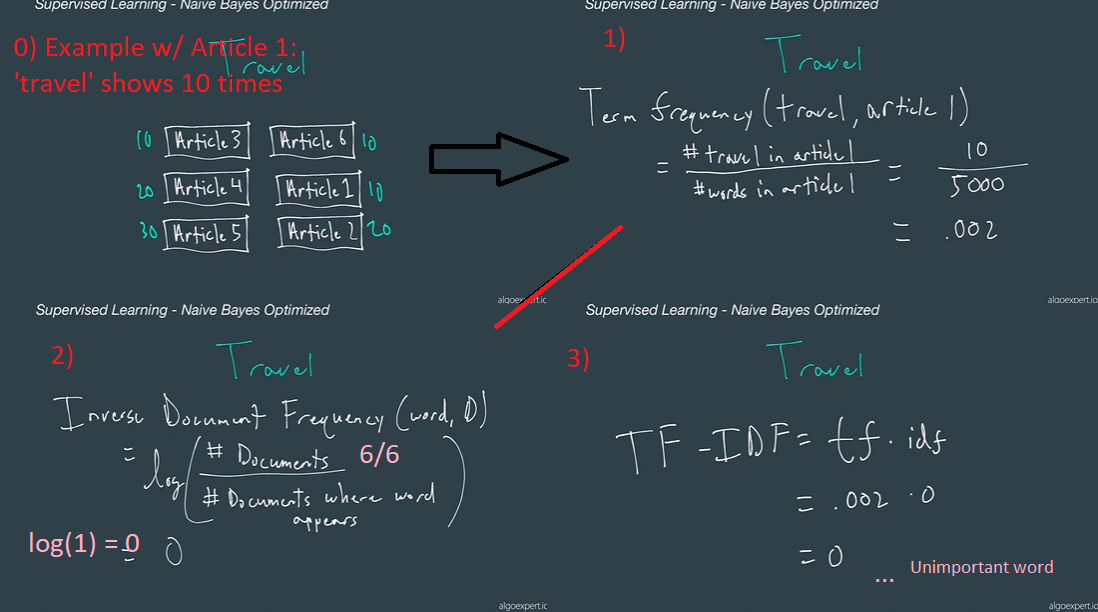 Supervised Learning - Naive Bayes Optimized
0) Example w/ Article 1:
'travel' shows 10 times
Travel
10 Article 3 Article 6 10
20 Article 4 Article 1 10
30 Article 5 Article 2 20
algoexpert.io
Supervised Learning - Naive Bayes Optimized
1)
Travel
Term frequency (travel, article 1)
= # travel in article 1 = 10
# words in article 1 5000
= .002
algoexpert.io
Supervised Learning - Naive Bayes Optimized
2)
Travel
Inverse Document Frequency (word, D)
= log( # Documents 6/6
# Documents where word
appears )
log(1) = 0
= 0
algoexpert.io
Supervised Learning - Naive Bayes Optimized
3)
Travel
TF-IDF = tf · idf
= .002 · 0
= 0
... Unimportant word
algoexpert.io